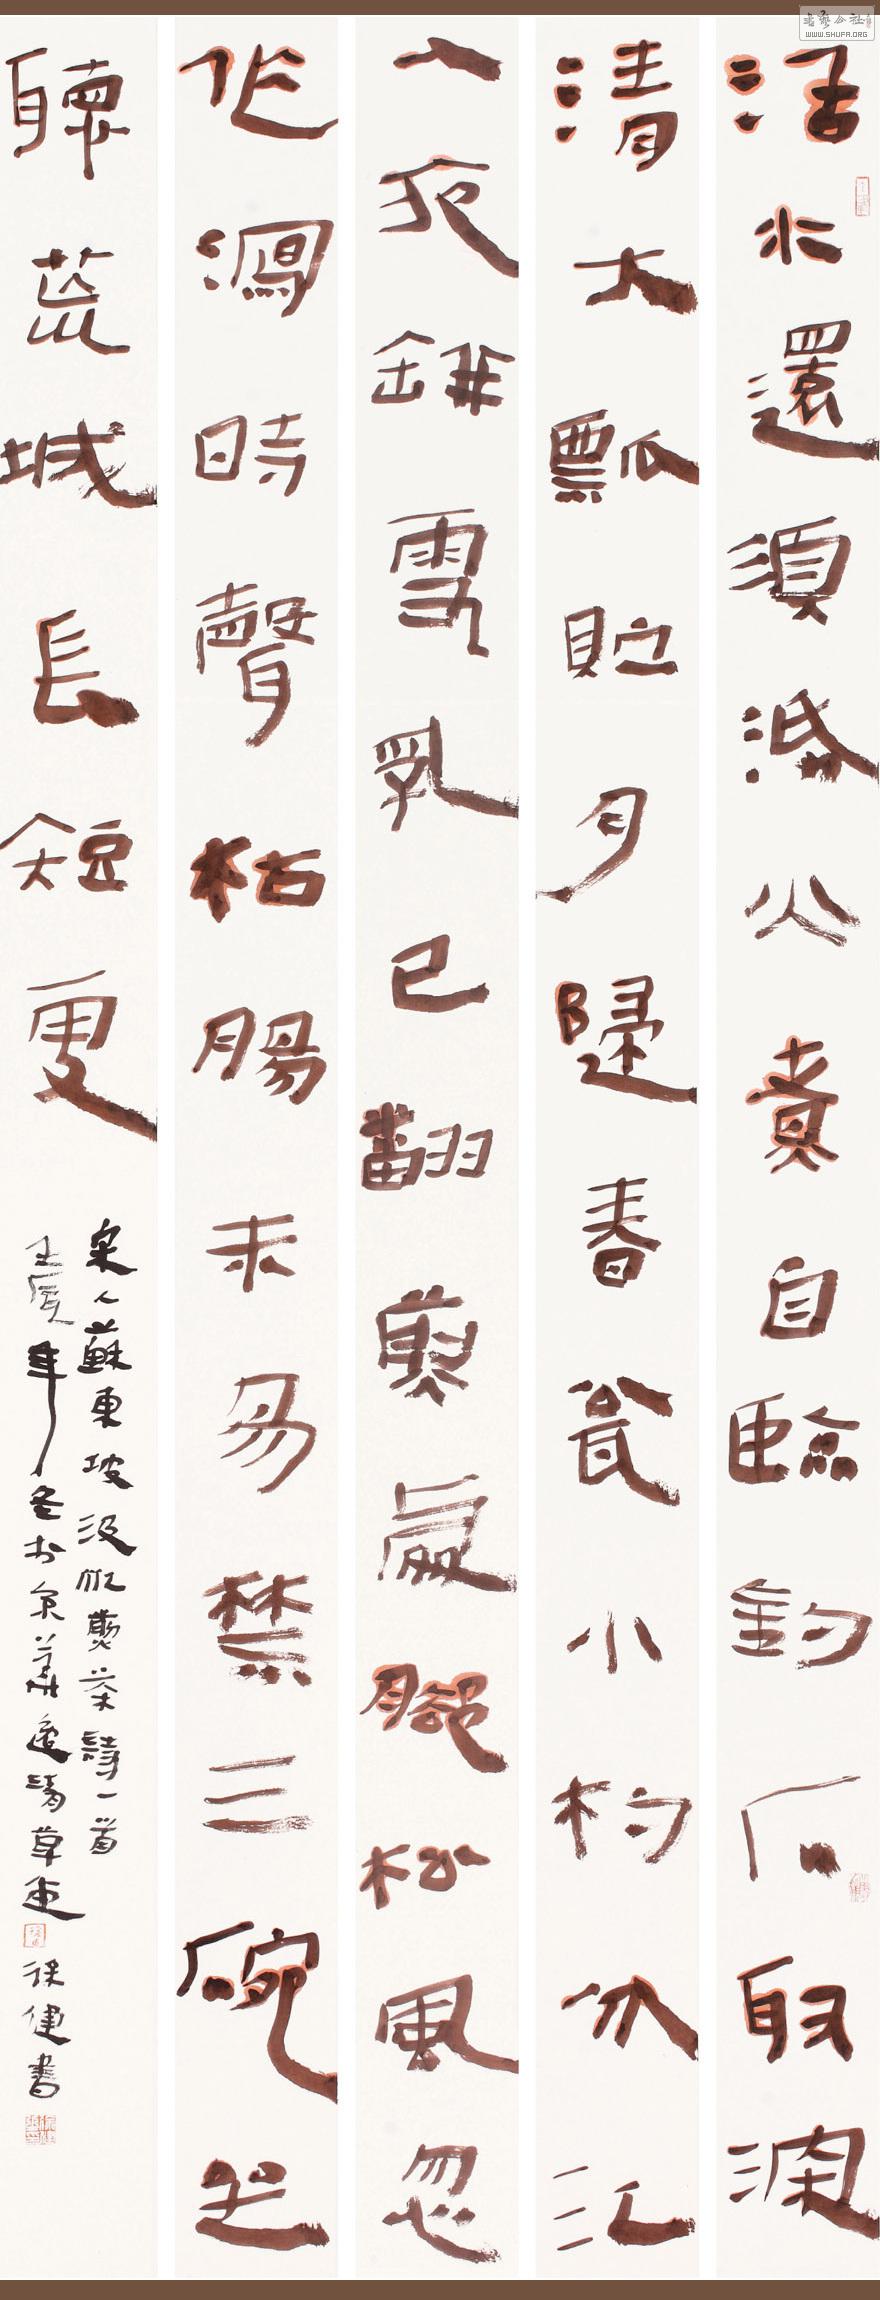 活水還須活火煮自臨釣石取深
清大瓢貯月歸春瓮小杓分江
入夜缾雪乳已翻煎處腳松風忽
作瀉時聲枯腸未易禁三碗坐
聽荒城長短更
宋人蘇東坡汲江煎茶詩一首
壬辰年冬於京華逸清草堂徐健書
書藝公社
WWW.SHUFA.ORG